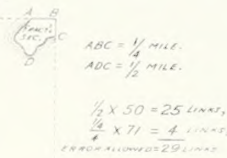 A B
FRACT.
SEC.
C
D
ABC = 1/4 MILE.
ADC = 1/2 MILE.
1/2 X 50 = 25 LINKS,
1/4/4 X 71 = 4 LINKS,
ERROR ALLOWED = 29 LINKS